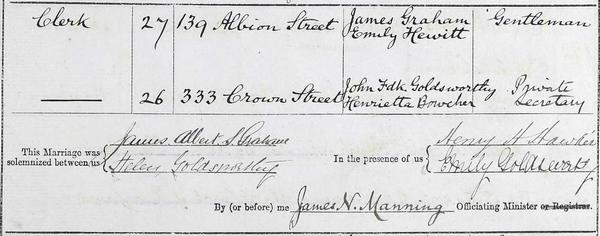 Clerk 27 139 Albion Street James Graham Gentleman
Emily Hewitt
26 333 Crown Street John Fdk Goldsworthy Private
Henrietta Bowcher Secretary
This Marriage was James Albert S. Graham Henry H Hawkins
solemnized between us Helen Goldsworthy In the presence of us Emily Goldsworthy
By (or before) me James N. Manning Officiating Minister or Registrar.